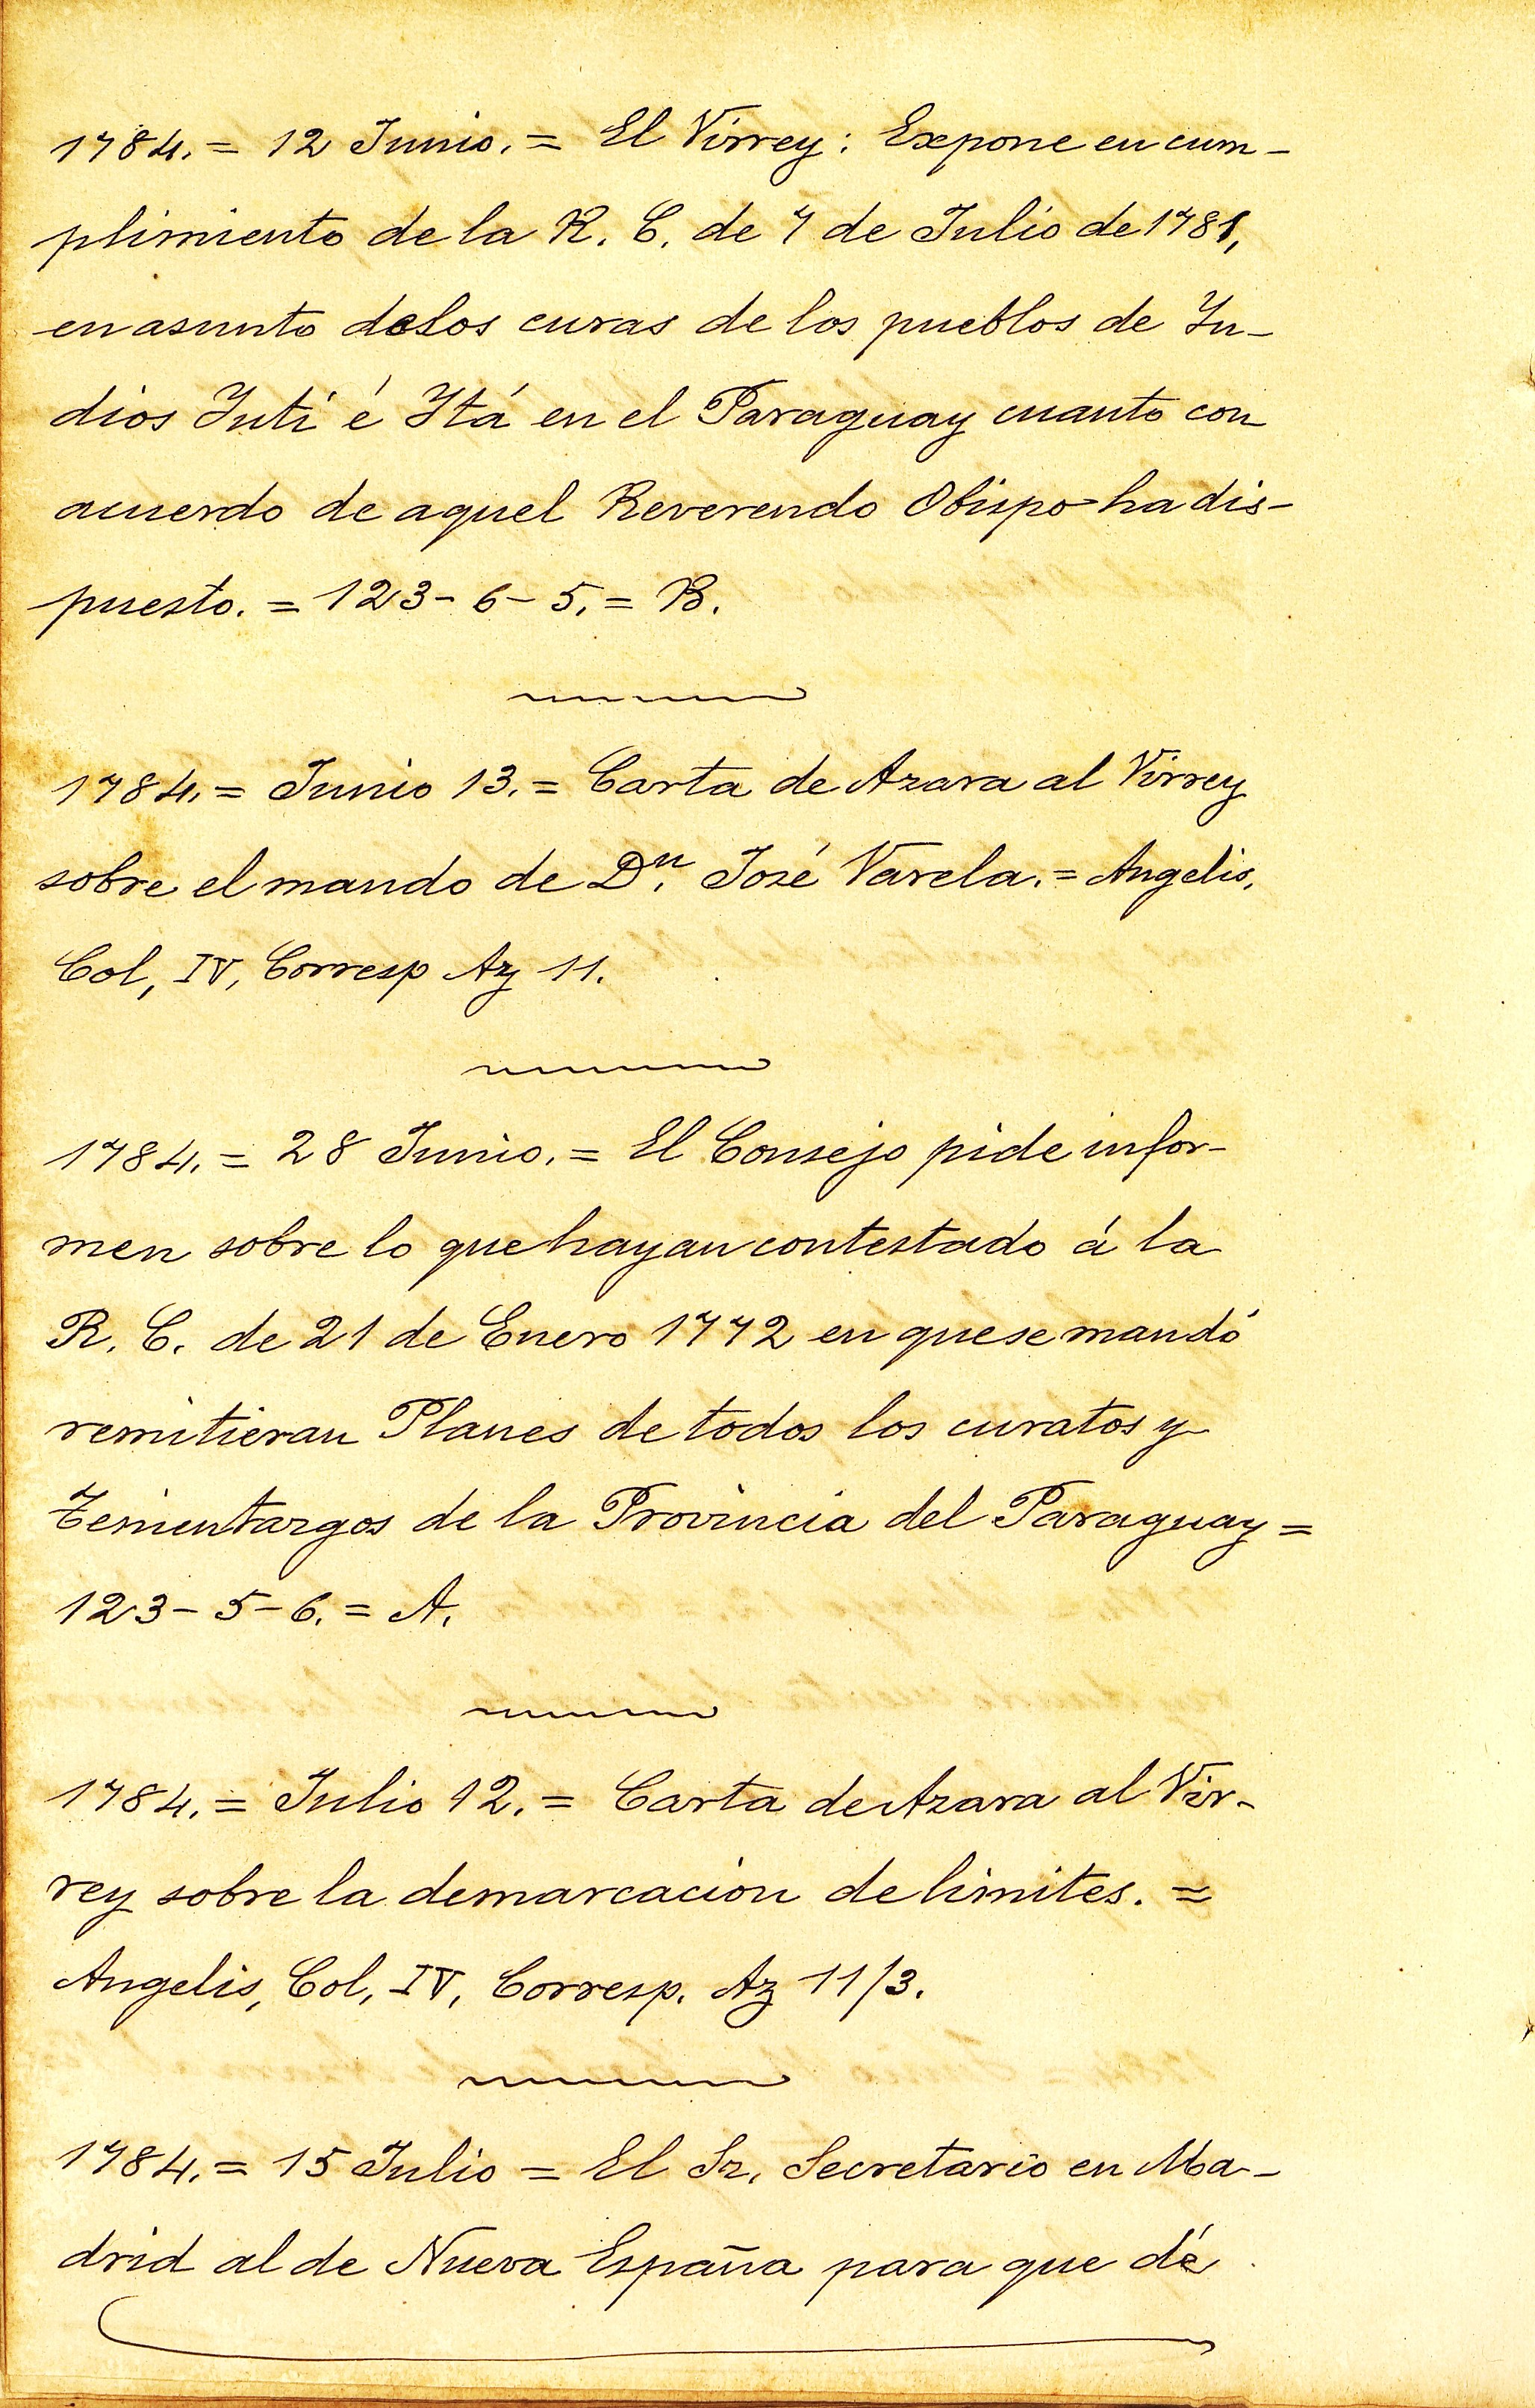 1784. = 12 Junio. = El Virrey: Expone en cum-
plimiento de la R. C. de 7 de Julio de 1781,
en asunto de los curas de los pueblos de In-
dios Juti é Itá en el Paraguay cuanto con
acuerdo de aquel Reverendo Obispo ha dis-
puesto. = 123-6-5. = B.
1784. = Junio 13. = Carta de Azara al Virrey
sobre el mando de Dn. José Varela. = Angelis,
Col, IV, Corresp Az 11.
1784. = 28 Junio. = El Consejo pide infor-
men sobre lo que hayan contestado á la
R. C. de 21 de Enero 1772 en que se mandó
remitieran Planes de todos los curatos y
de la Provincia del Paraguay =
123-5-6. = A.
1784. = Julio 12. = Carta de Azara al Vir-
rey sobre la demarcacion de limites. =
Angelis, Col, IV, Corresp. Az 11/3.
1784. = 15 Julio = El Sr. Secretario en Ma-
drid al de Nueva España para que dé